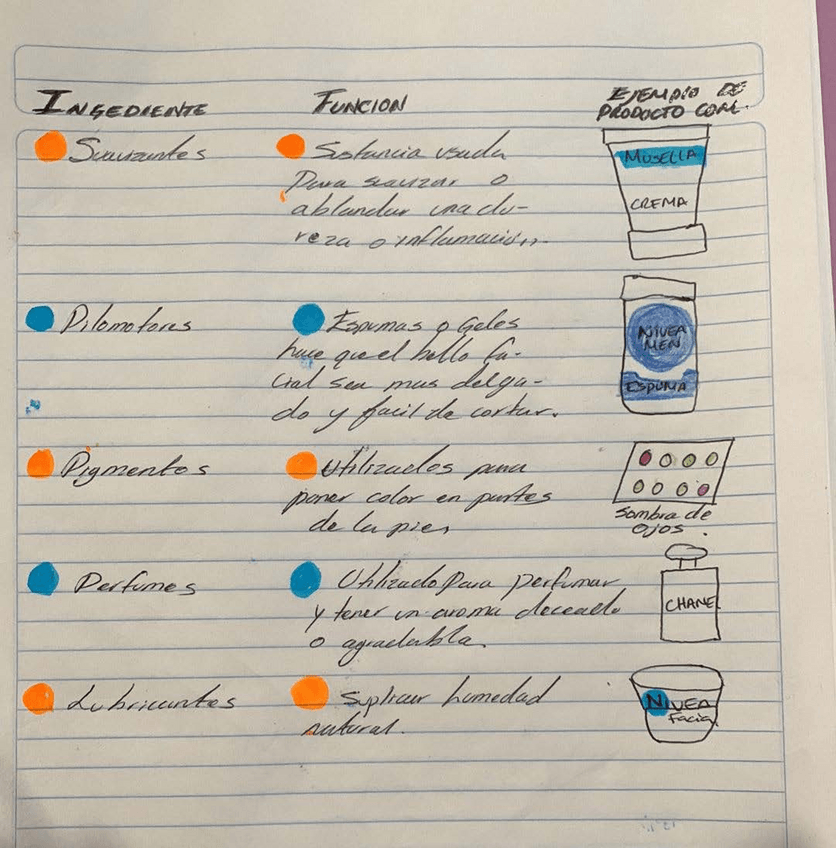 INGEDIENTE FUNCION EJEMPLO DE
PRODUCTO COM.
Suavizantes Sustancia usada
Para suavizar o
ablandar una du-
reza o inflamación.
MUSELLA
CREMA
Pilomotores Espumas o Geles
hace que el bello fa-
cial sea mas delga-
do y facil de cortar.
NIVEA
MEN
ESPUMA
Pigmentos Utilizados para
poner color en partes
de la piel
Sombra de
OJOS.
Perfumes Utilizado Para perfumar
y tener un aroma deceado
o agradabla.
CHANE
Lubricantes Suplicar humedad
natural.
NIVEA
Facia